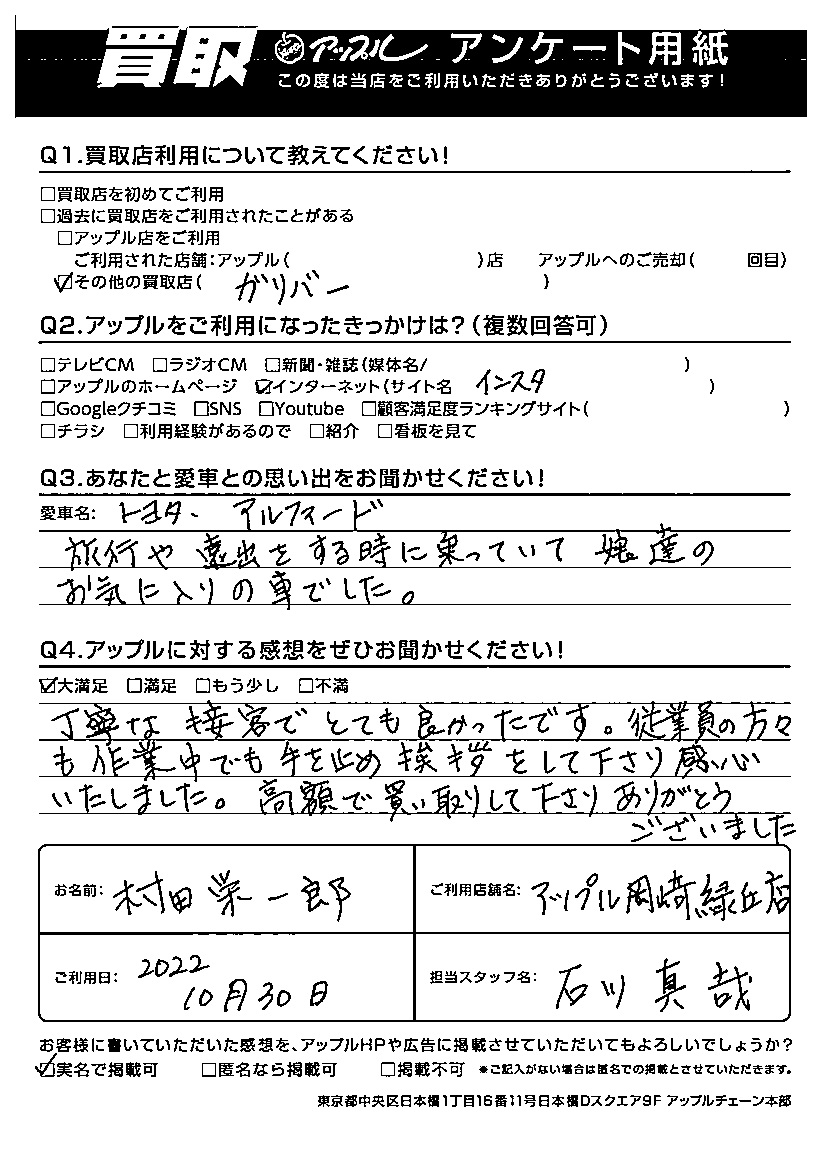 買取 アップル アンケート用紙
この度は当店をご利用いただきありがとうございます!
Q1.買取店利用について教えてください!
□買取店を初めてご利用
□過去に買取店をご利用されたことがある
□アップル店をご利用
ご利用された店舗:アップル( )店 アップルへのご売却( 回目)
☑その他の買取店( ガリバー )
Q2.アップルをご利用になったきっかけは?(複数回答可)
□テレビCM □ラジオCM □新聞・雑誌(媒体名/ )
□アップルのホームページ ☑インターネット(サイト名 インスタ )
□Googleクチコミ □SNS □Youtube □顧客満足度ランキングサイト( )
□チラシ □利用経験があるので □紹介 □看板を見て
Q3.あなたと愛車との思い出をお聞かせください!
愛車名: トヨタ・アルファード
旅行や遠出をする時に乗っていて 娘達の
お気に入りの車でした。
Q4.アップルに対する感想をぜひお聞かせください!
☑大満足 □満足 □もう少し □不満
丁寧な接客でとても良かったです。従業員の方々
も作業中でも手を止め挨拶をして下さり感心
いたしました。高額で買い取りして下さりありがとう
ございました
お名前: 村田栄一郎
ご利用店舗名: アップル岡崎緑丘店
ご利用日: 2022
10月30日
担当スタッフ名: 石川真哉
お客様に書いていただいた感想を、アップルHPや広告に掲載させていただいてもよろしいでしょうか?
☑実名で掲載可 □匿名なら掲載可 □掲載不可 *ご記入がない場合は匿名での掲載とさせていただきます。
東京都中央区日本橋1丁目16番11号日本橋Dスクエア9F アップルチェーン本部